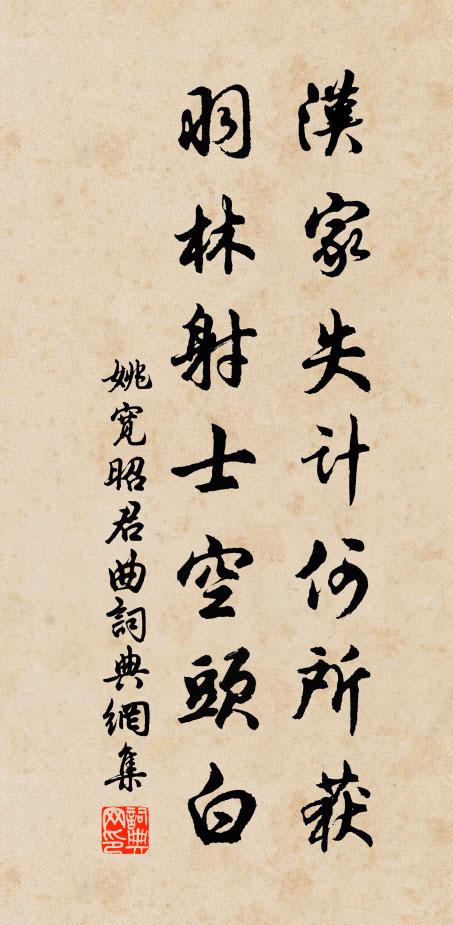 漢家失計何所获
羽林射士空頭白
姚寬昭君曲詞典網集
詞典网印